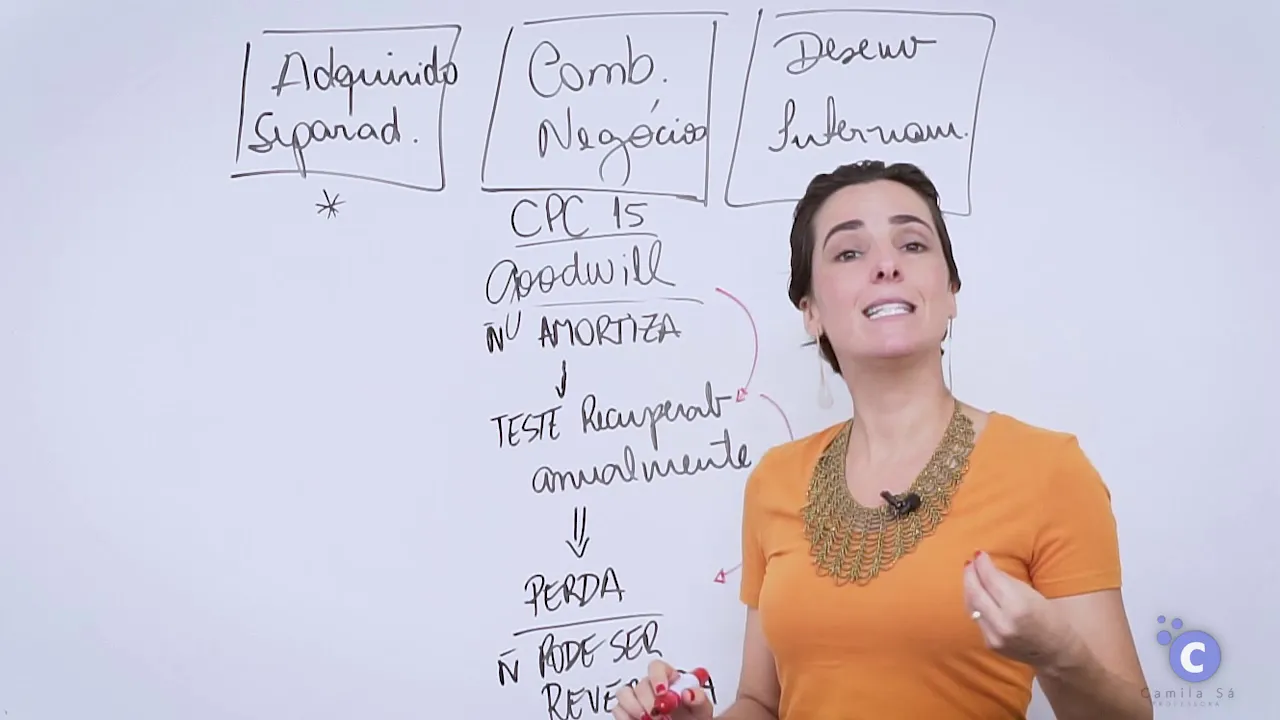 Adquirido
Separad.
*
Comb.
Negócios
CPC 15
Goodwill
Ñ AMORTIZA
TESTE Recuperab
anualmente
PERDA
Ñ PODE SER
Desenv
Internam.
C
Camila Sá
PROFESSORA